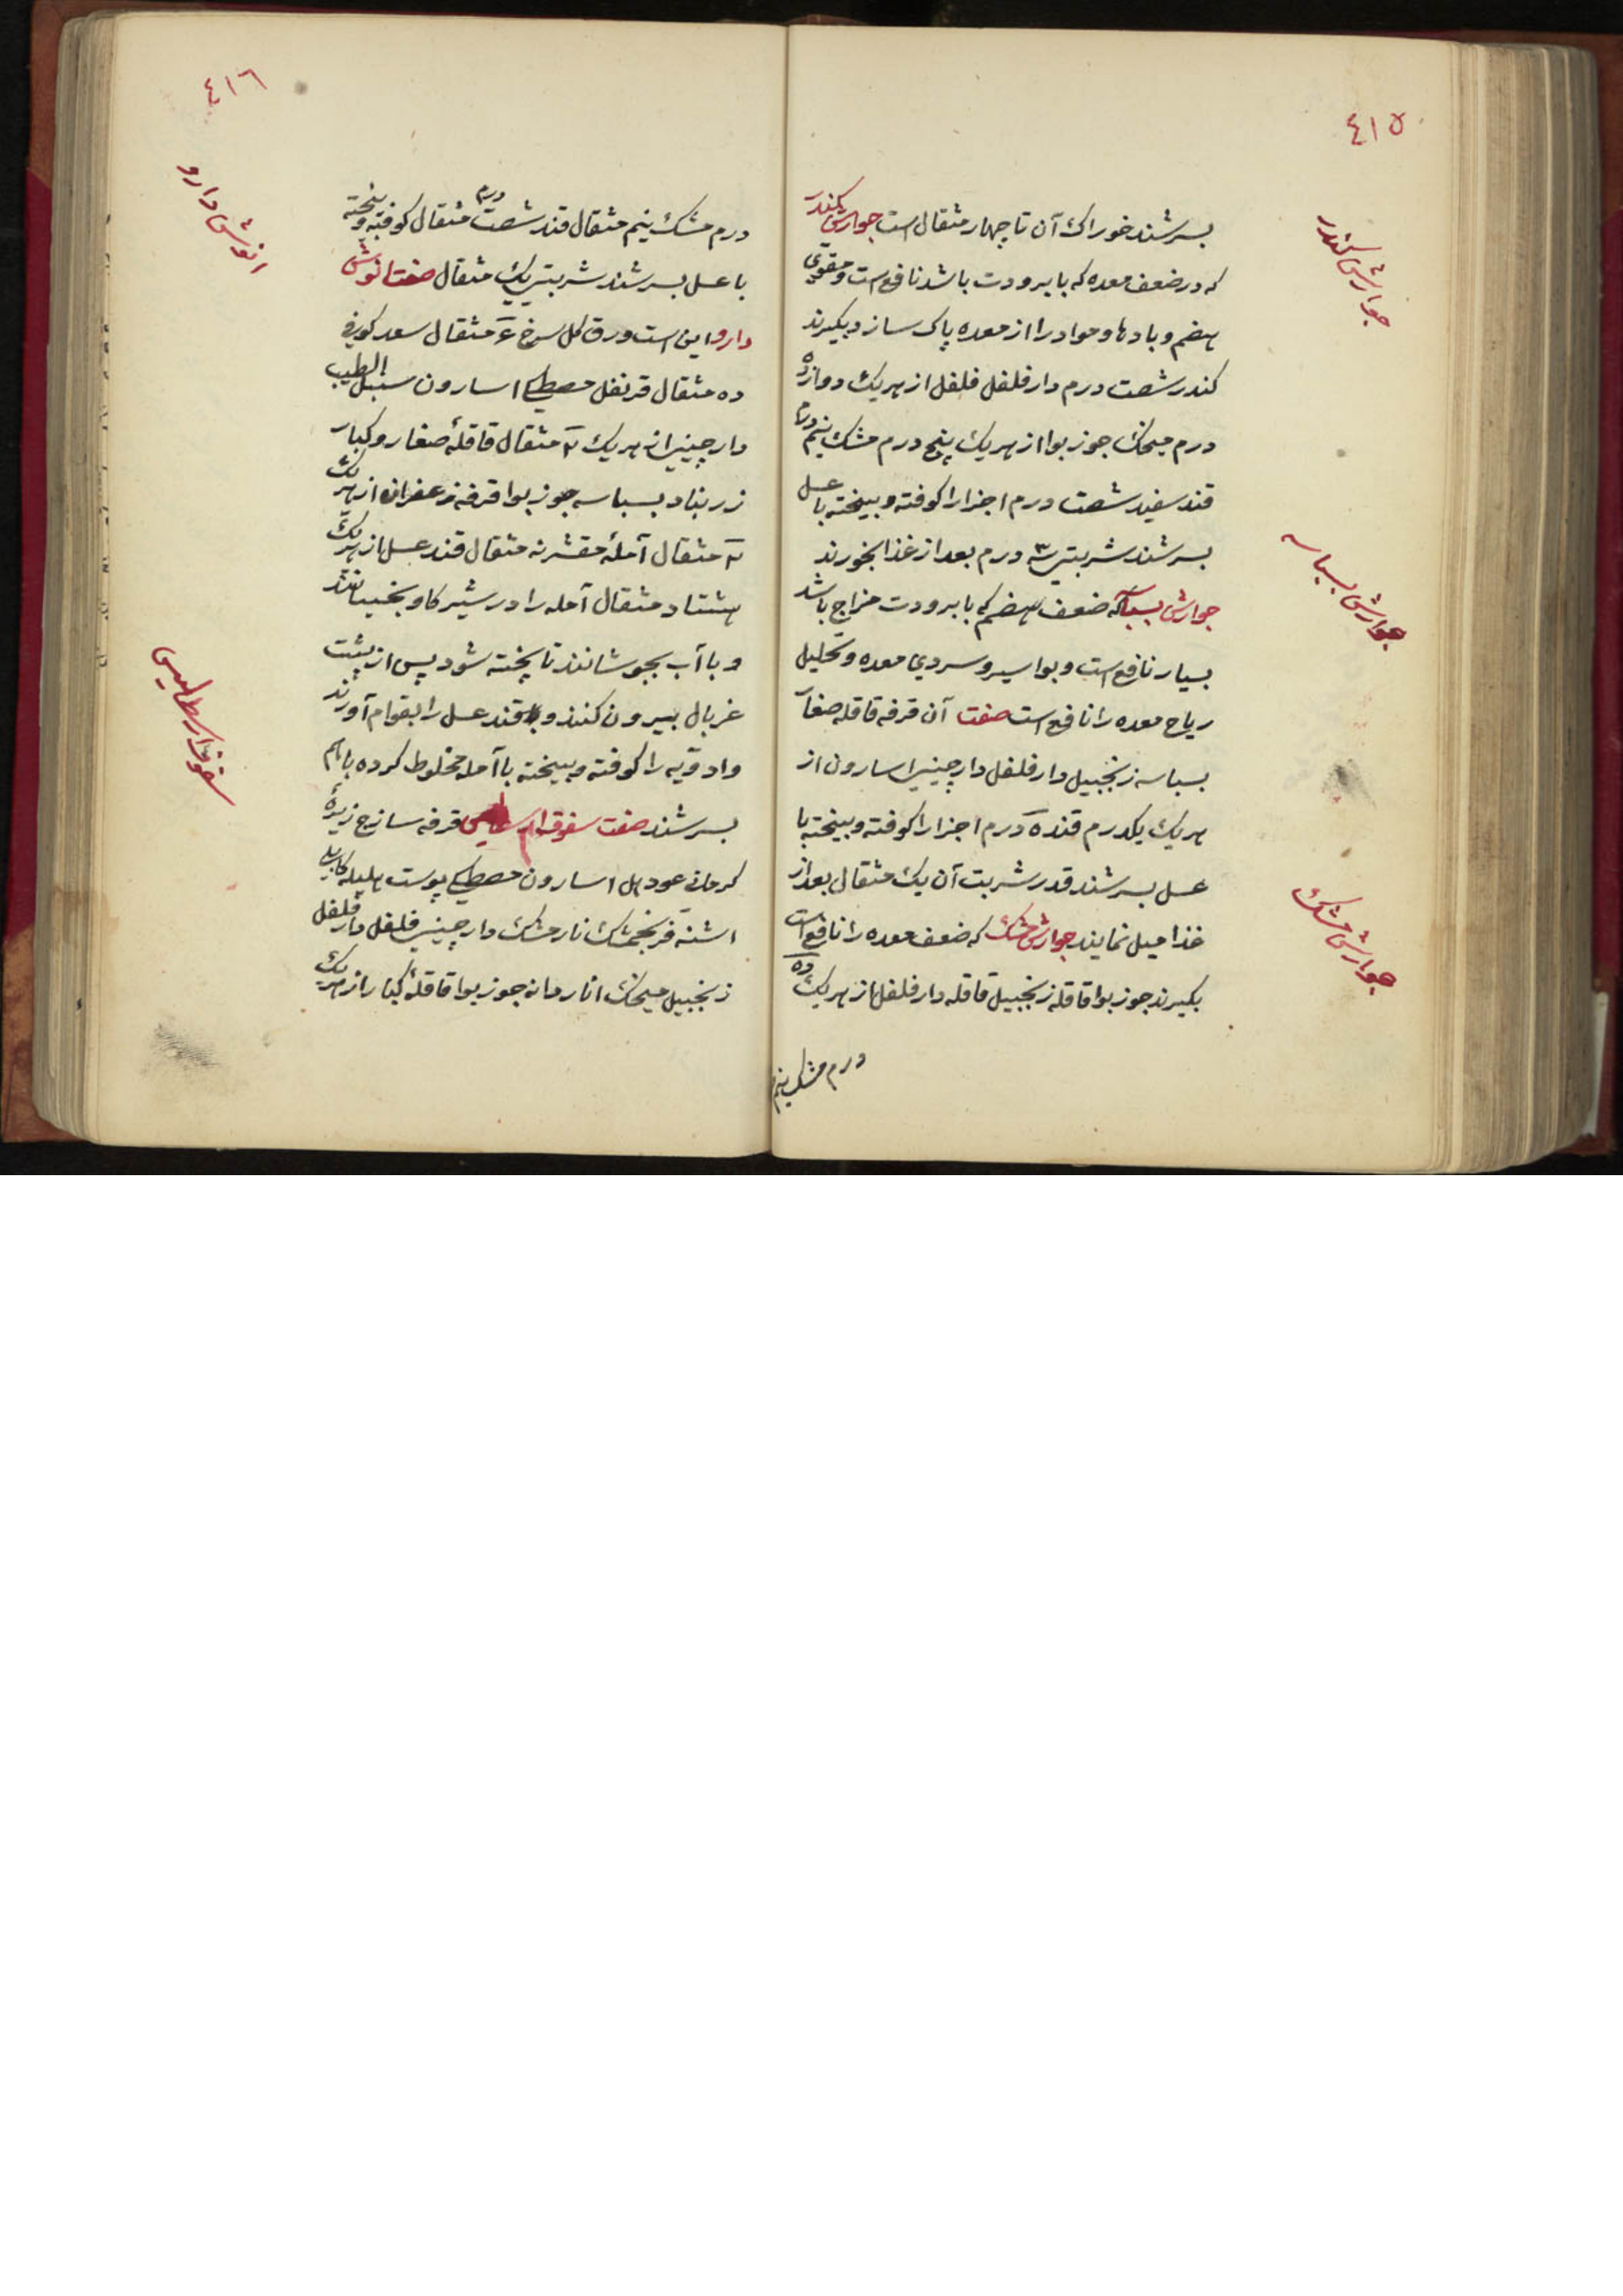 ٤١٥
بسرشند خوراك آن تا چهار مثقال است جوارش کندر
که در ضعف معده که با برودت باشد نافع است و مقوی
هضم و بادها و مواد را از معده پاک سازد بگیرند
کندر شصت درم دار فلفل فلفل از هریك دوازده
درم میخك جوز بوا از هریك پنج درم مشك نیم درم
قند سفید شصت درم اجزا را کوفته و بیخته با عسل
بسرشند شربتی ٣ درم بعد از غذا بخورند
جوارش بسباسه که ضعف هضم که با برودت مزاج باشد
بسیار نافع است و بواسیر و سردی معده و تحلیل
ریاح معده را نافع است صفت آن قرفه قاقله صغار
بسباسه زنجبیل دار فلفل دارچینی اسارون از
هریك یكدرم قند ده درم اجزا را کوفته و بیخته با
عسل بسرشند قدر شربت آن یك مثقال بعد از
غذا میل نمایند جوارش مشك که ضعف معده را نافع است
بگیرند جوز بوا قاقله زنجبیل قاقله دار فلفل از هریك ده
درم مشك نیم
جوارش کندر
جوارش بسباسه
جوارش مشك
٤١٦
درم مشك نیم مثقال قند شصت درم مثقال کوفته و بیخته
با عسل بسرشند شربتی یك مثقال صفت انوش
دارو این است ورق گل سرخ ٤ مثقال سعد کوفی
ده مثقال قرنفل مصطکی اسارون سنبل الطیب
دارچینی از هریك مثقال قاقلهٔ صغار و کبار
زرنباد بسباسه جوز بوا قرفه زعفران از هریك
مثقال آملهٔ مقشر نه مثقال قند عسل از هریك
هشتاد مثقال آمله را در شیر گاو بخیسانند
و با آب بجوشانند تا پخته شود پس از پشت
غربال بیرون کنند و قند عسل را بقوام آورند
و ادویه را کوفته و بیخته با آمله مخلوط کرده باهم
بسرشند صفت قرفه سازج زیرهٔ
کرمانی عود هل اسارون مصطکی پوست هلیله کابلی
اشنه فرنجمشك نارمشك دارچینی فلفل دار فلفل
زنجبیل میخك انار دانه جوز بوا قاقلهٔ کبار از هریك
انوش دارو